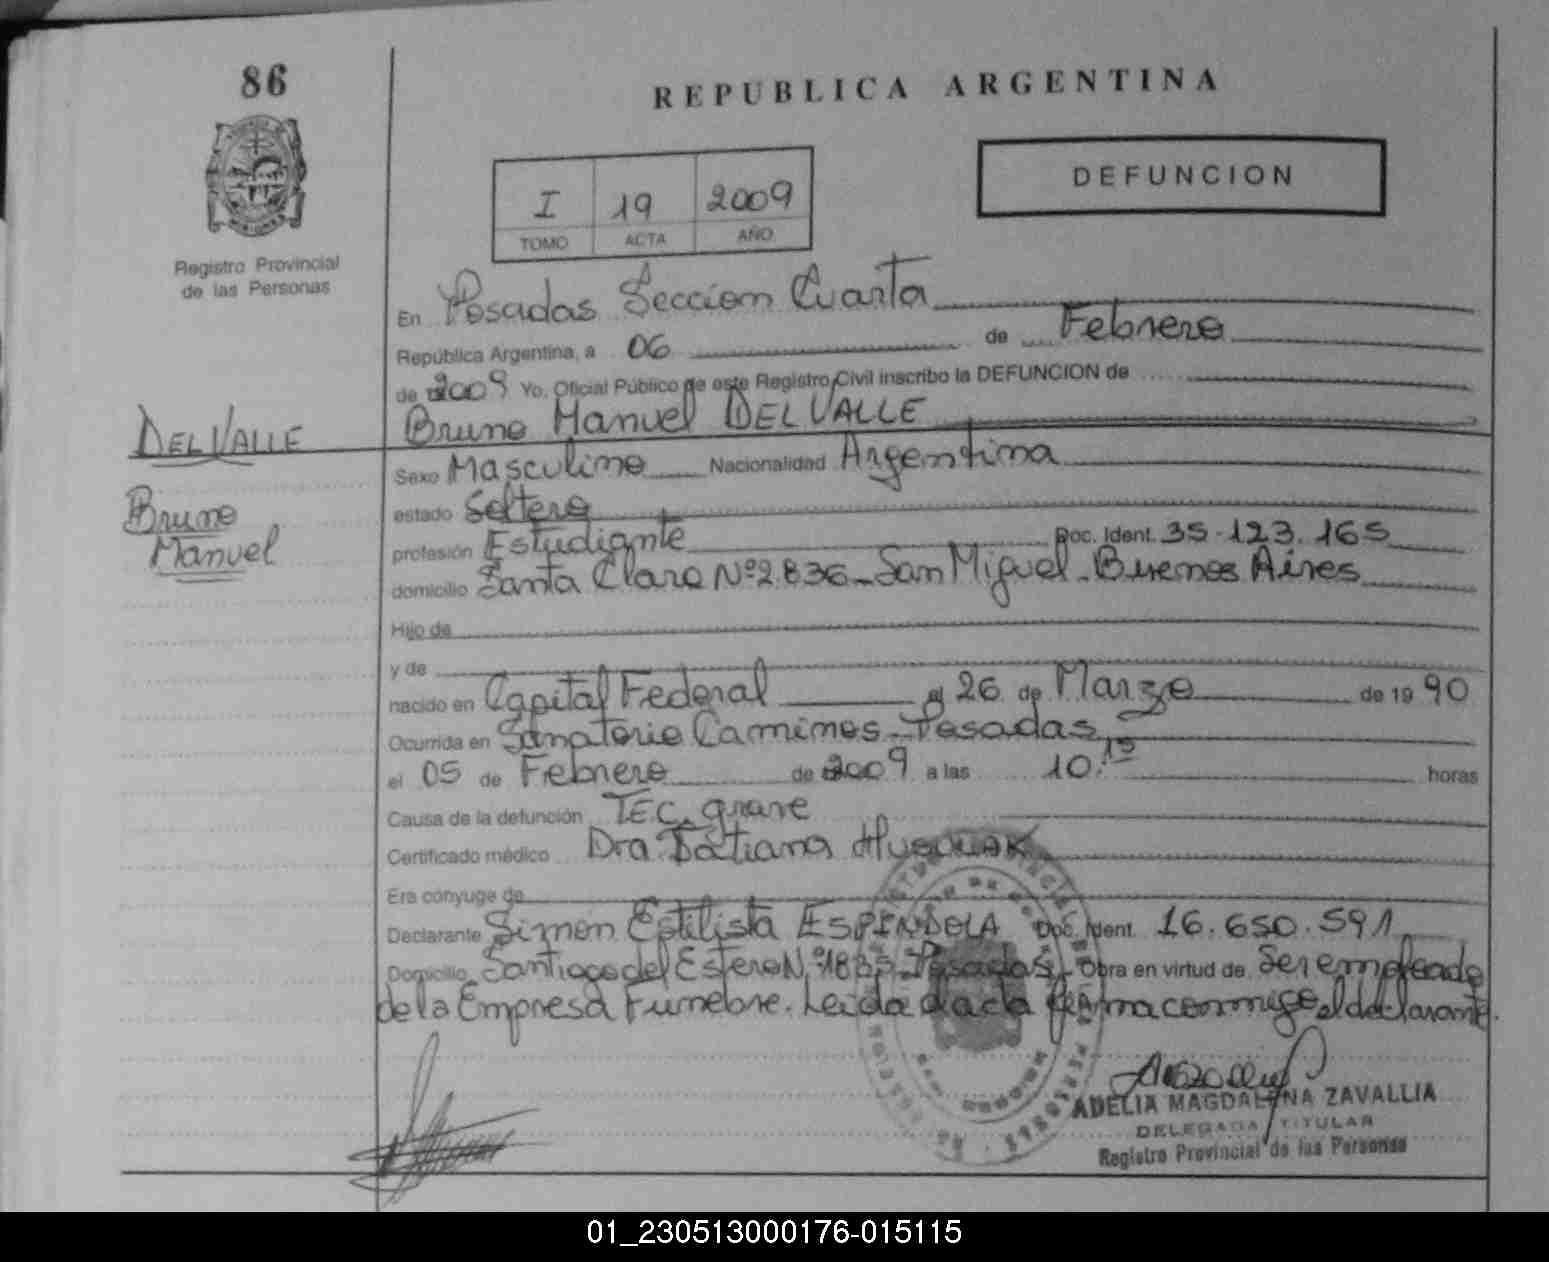 86
REPUBLICA ARGENTINA
DEFUNCION
I 19 2009
TOMO ACTA AÑO
Registro Provincial
de las Personas
En Posadas Seccion Cuarta
República Argentina, a 06 de Febrero
de 2009 Yo, Oficial Público de este Registro Civil inscribo la DEFUNCION de
Bruno Manuel DEL VALLE
DEL VALLE
Bruno
Manuel
Sexo Masculino Nacionalidad Argentina
estado Soltero
profesión Estudiante Doc. Ident. 35.123.165
domicilio Santa Clara Nº2.836-San Miguel-Buenos Aires
Hijo de
y de
nacido en Capital Federal el 26 de Marzo de 19 90
Ocurrida en Sanatorio Caminos-Posadas
el 05 de Febrero de 2009 a las 10.15 horas
Causa de la defunción TEC. grave
Certificado médico Dra. Tatiana
Era cónyuge de
Declarante Simón Estilista ESPINDOLA Doc. Ident. 16.650.591
Domicilio Santiago del Estero N.º Posadas Obra en virtud de Ser empleado
de la Empresa Funebre. Leida el acta firma conmigo el declarante.
ADELIA MAGDALENA ZAVALLIA
DELEGADA TITULAR
Registro Provincial de las Personas
01_230513000176-015115